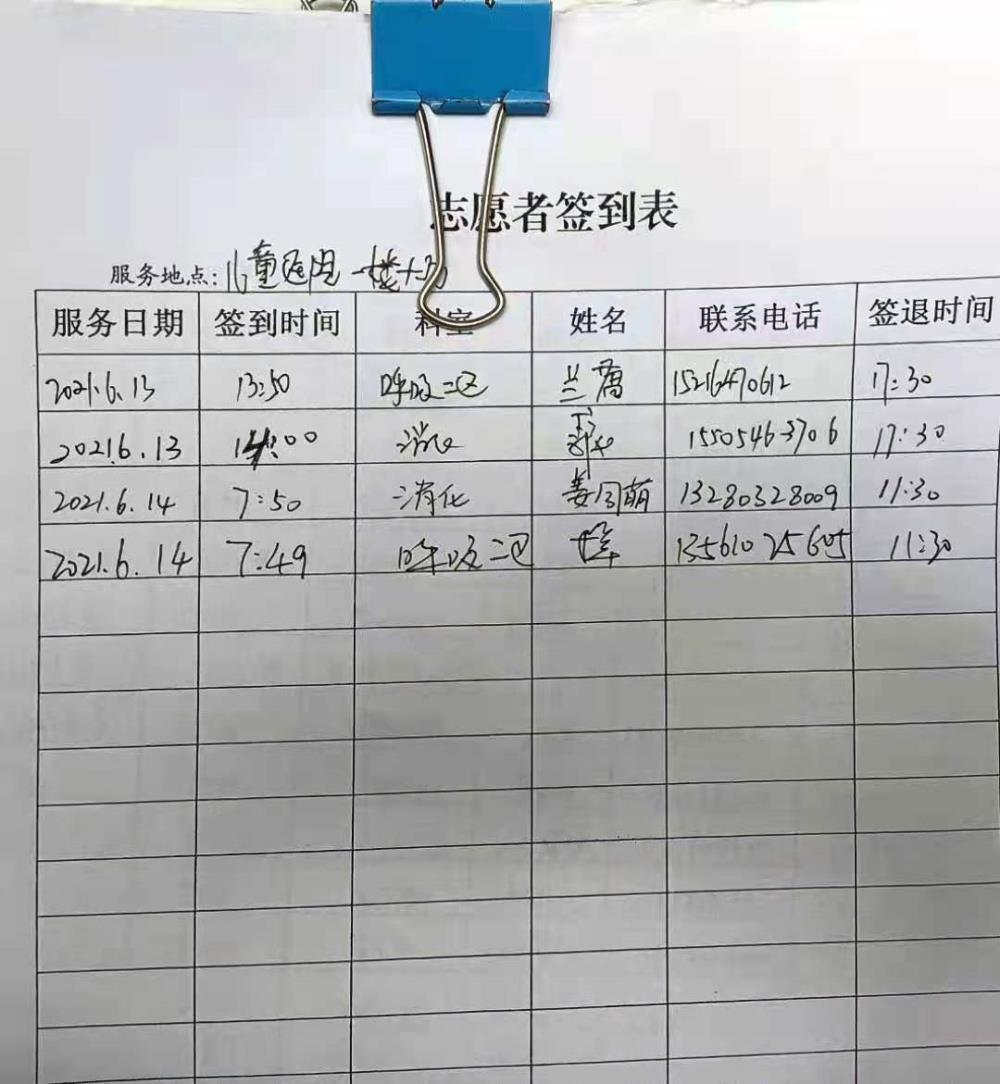 志愿者签到表
服务地点：儿童医院一楼大厅
服务日期 签到时间 科室 姓名 联系电话 签退时间
2021.6.13 13:50 呼吸二区 兰 15216470612 17:30
2021.6.13 14:00 消化 15505463706 17:30
2021.6.14 7:50 消化 姜同萌 13280328009 11:30
2021.6.14 7:49 呼吸二区 13561025605 11:30